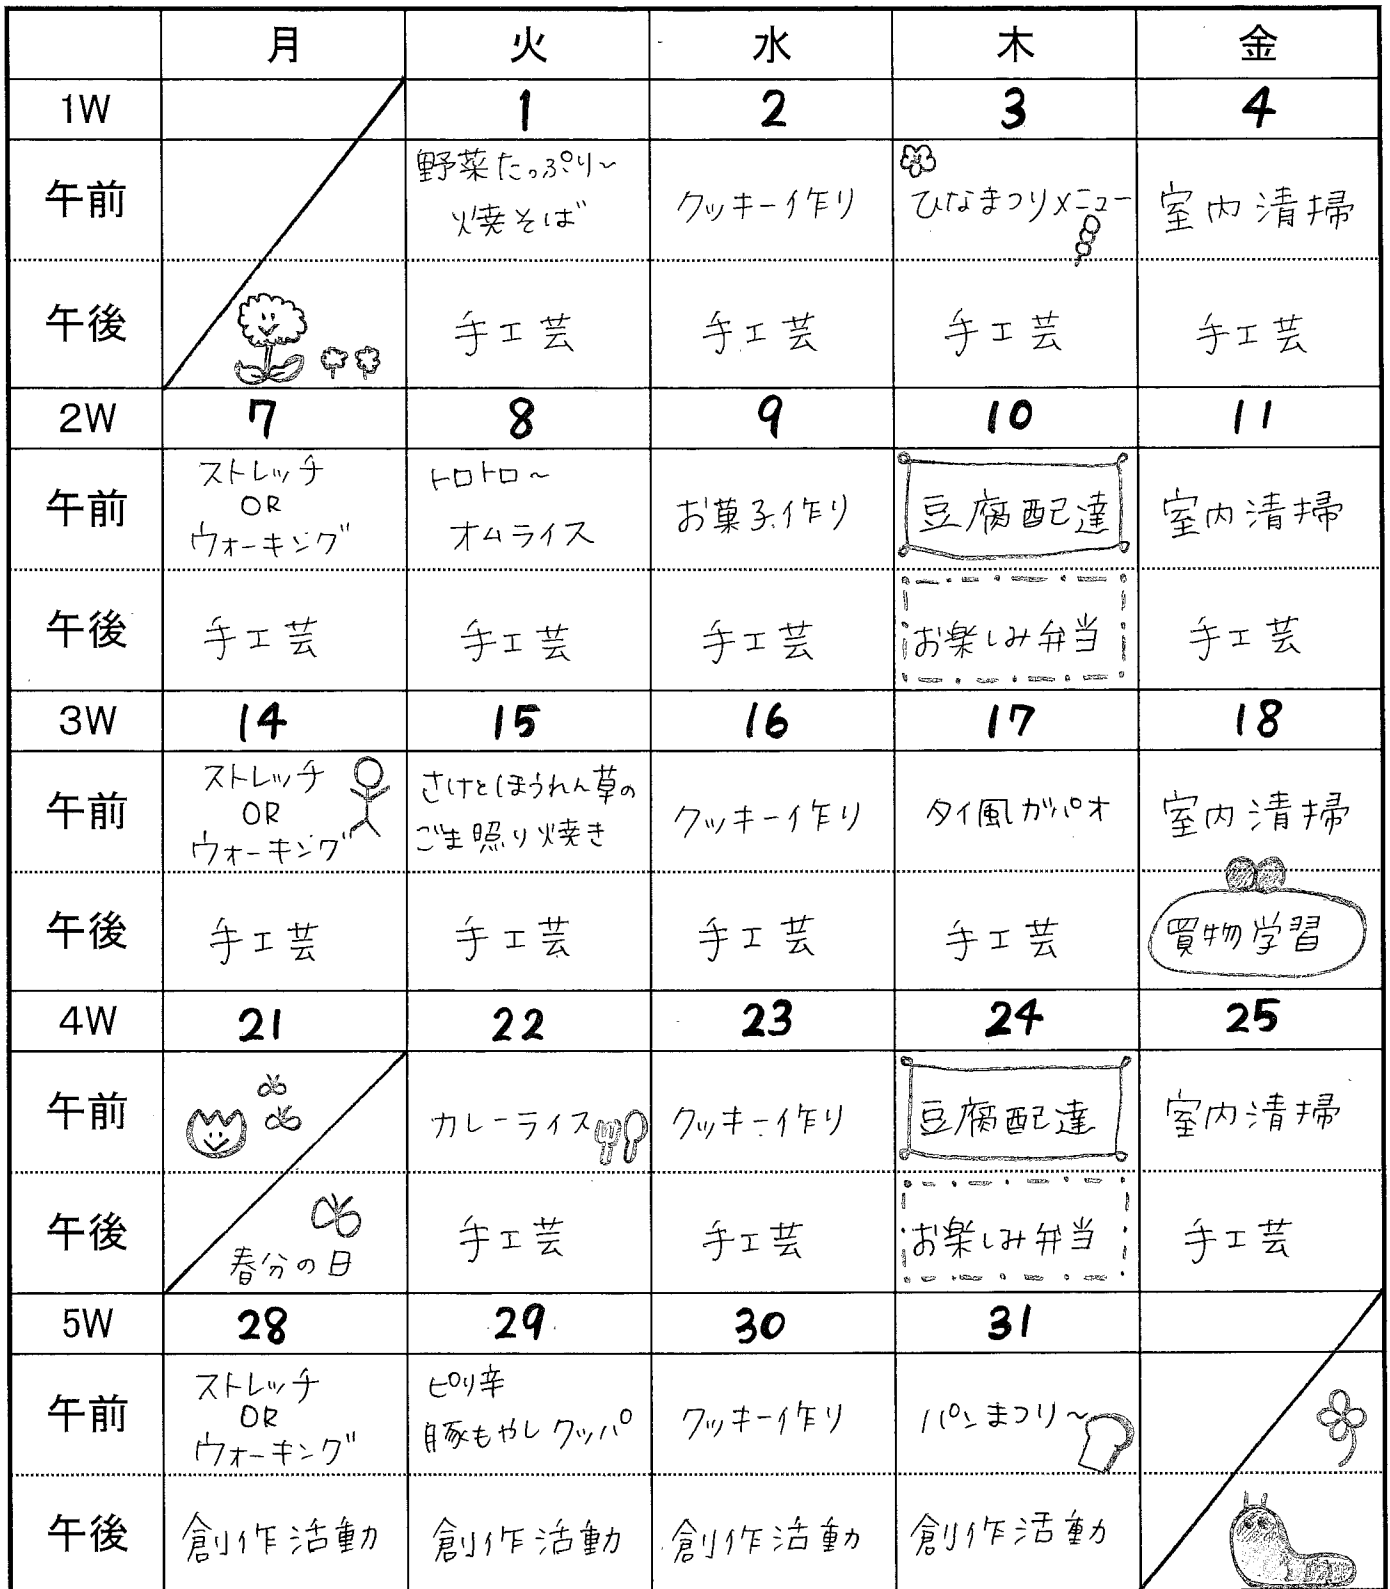 月 火 水 木 金
1W 1 2 3 4
午前
野菜たっぷり～
焼そば
クッキー作り
ひなまつりメニュー
室内清掃
午後 手工芸 手工芸 手工芸 手工芸
2W 7 8 9 10 11
午前
ストレッチ
OR
ウォーキング
トロトロ～
オムライス
お菓子作り
豆腐配達
室内清掃
午後 手工芸 手工芸 手工芸 お楽しみ弁当 手工芸
3W 14 15 16 17 18
午前
ストレッチ
OR
ウォーキング
さけとほうれん草の
ごま照り焼き
クッキー作り
タイ風ガパオ
室内清掃
午後 手工芸 手工芸 手工芸 手工芸 買物学習
4W 21 22 23 24 25
午前 カレーライス クッキー作り 豆腐配達 室内清掃
午後 春分の日 手工芸 手工芸 お楽しみ弁当 手工芸
5W 28 29 30 31
午前
ストレッチ
OR
ウォーキング
ピリ辛
豚もやしクッパ
クッキー作り
パンまつり～
午後 創作活動 創作活動 創作活動 創作活動